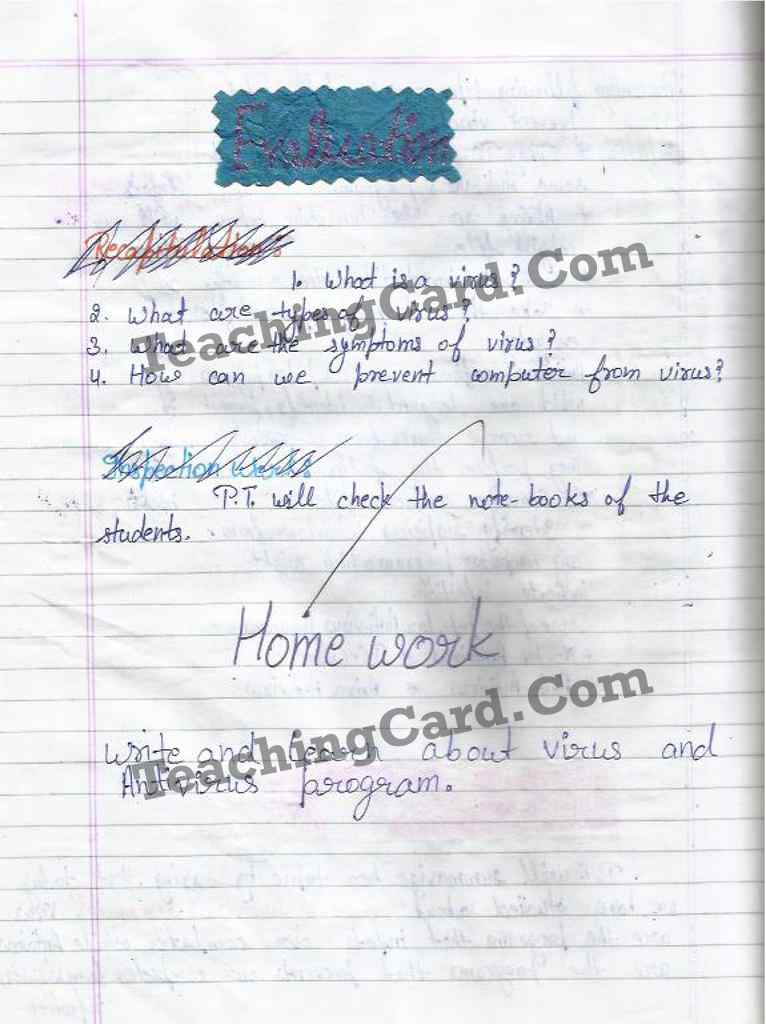 Evaluation
Recapitulations
1. What is a virus?
2. What are types of virus?
3. What are the symptoms of virus?
4. How can we prevent computer from virus?
TeachingCard.Com
Inspection works
P.T. will check the note-books of the
students.
Home work
TeachingCard.Com
Write and Learn about virus and
Antivirus program.